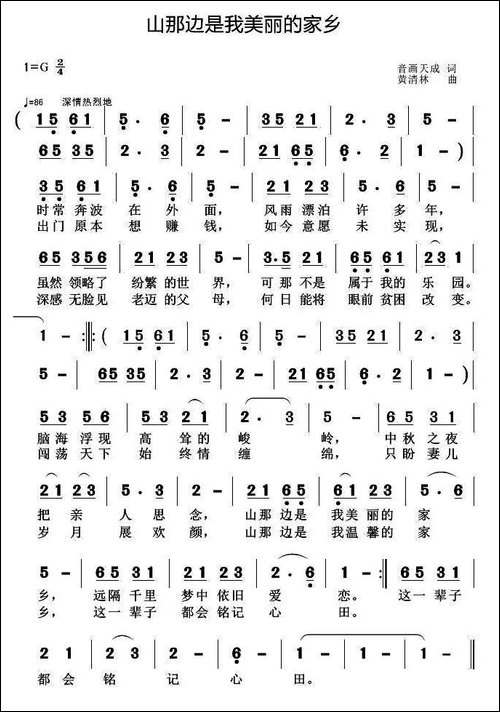 山那边是我美丽的家乡
1=G 2/4
音画天成 词
黄清林 曲
♩=86 深情热烈地
( 15 61 | 5· 6 | 5 - | 35 21 | 2· 3 | 5 - |
65 35 | 2· 3 | 5 - | 65 35 | 6· 2 | 1 - )
35 61 | 5· 6 | 5 - | 22 23 | 5· 6 | 3 - |
时常奔波 在 外 面, 风雨漂泊 许 多 年,
出门原本 想 赚 钱, 如今意愿 未 实 现,
56 53 | 21 23 | 5 - | 3·5 21 | 65 61 | 23 1 |
虽然领略了 纷繁的世 界, 可那不是 属于我的 乐 园。
深感无脸见 老迈的父 母, 何日能将 眼前贫困 改 变。
1 - :‖: ( 15 61 | 5· 6 | 5 - | 35 21 | 2· 3 |
5 - | 65 35 | 2· 3 | 21 65 | 6· 2 | 1 - )
53 56 | 53 21 | 2· 3 | 53 23 |
脑海浮现 高 耸的 峻 岭, 中秋之夜
闯荡天下 始 终情 缠 绵, 只盼妻儿
21 23 | 5· 3 | 2 - | 21 65 | 61 23 | 5· 6 |
把 亲 人 思 念, 山那 边是 我美 丽的 家
岁 月 展 欢 颜, 山那 边是 我温 馨的 家
5 - | 65 31 | 65 35 | 2· 6 | 1 - :‖ 65 31 |
乡, 远隔 千里 梦中 依旧 爱 恋。 这一 辈子
乡, 这一 辈子 都会 铭记 心 田。
2 1 | 2 - | 5 6 | 2 2 | 1 - | 1 - ‖
都 会 铭 记 心 田。